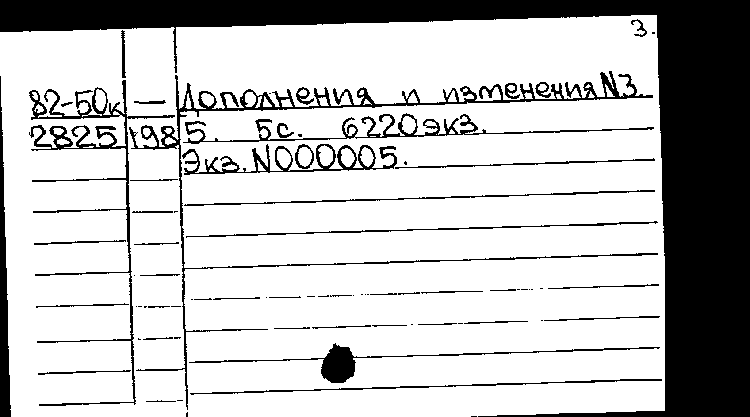 3.
82-50к — Дополнения и изменения N3
2825 1985. 5с. 6220экз.
Экз. N000005.